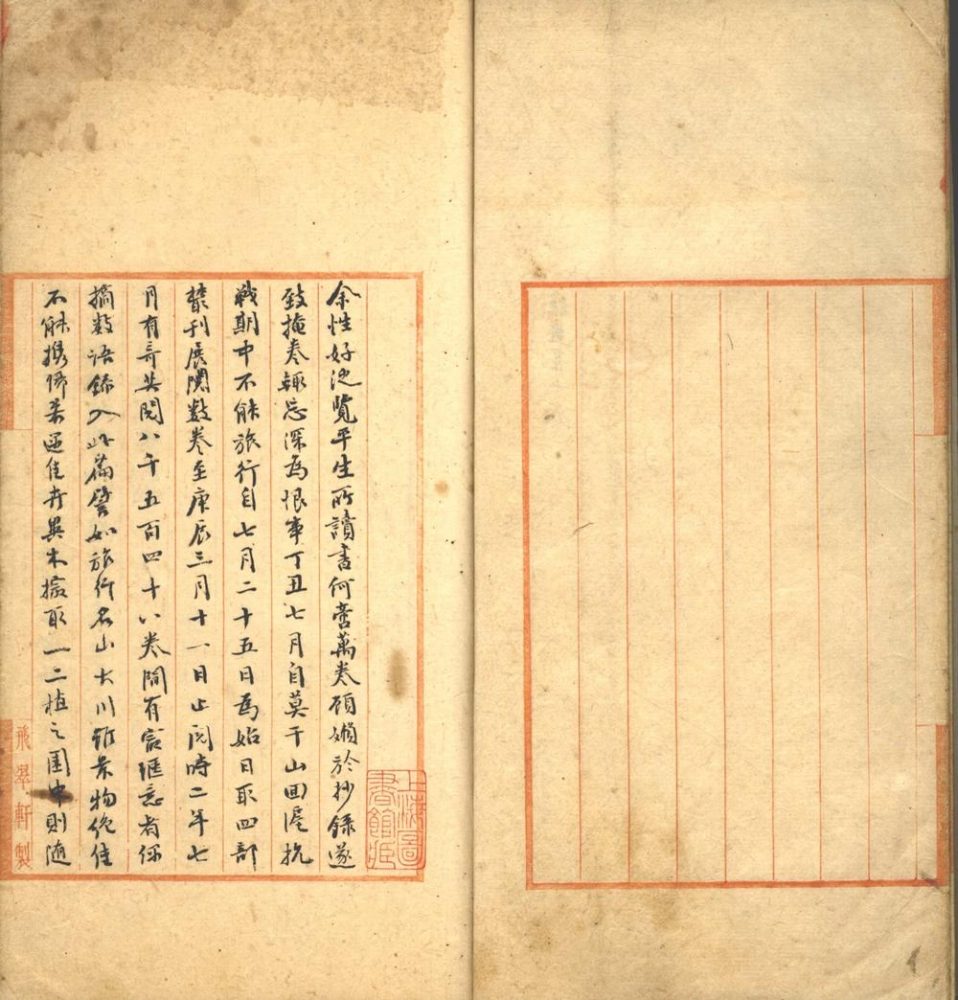 余性好泛覽平生所讀書何啻萬卷顧嬾於抄錄遂
致掩卷輒忘深為恨事丁丑七月自莫干山回滬抗
戰期中不能旅行自七月二十五日為始日取四部
叢刊展閱數卷至庚辰三月十一日止閱時二年七
月有奇共閱八千五百四十八卷間有當愜意者係
摘數語錄入此篇譬如旅行名山大川雖景物絕佳
不能攜歸若逗佳卉異木撿取一二植之園中則隨
上海圖
書館藏
飛翠軒製